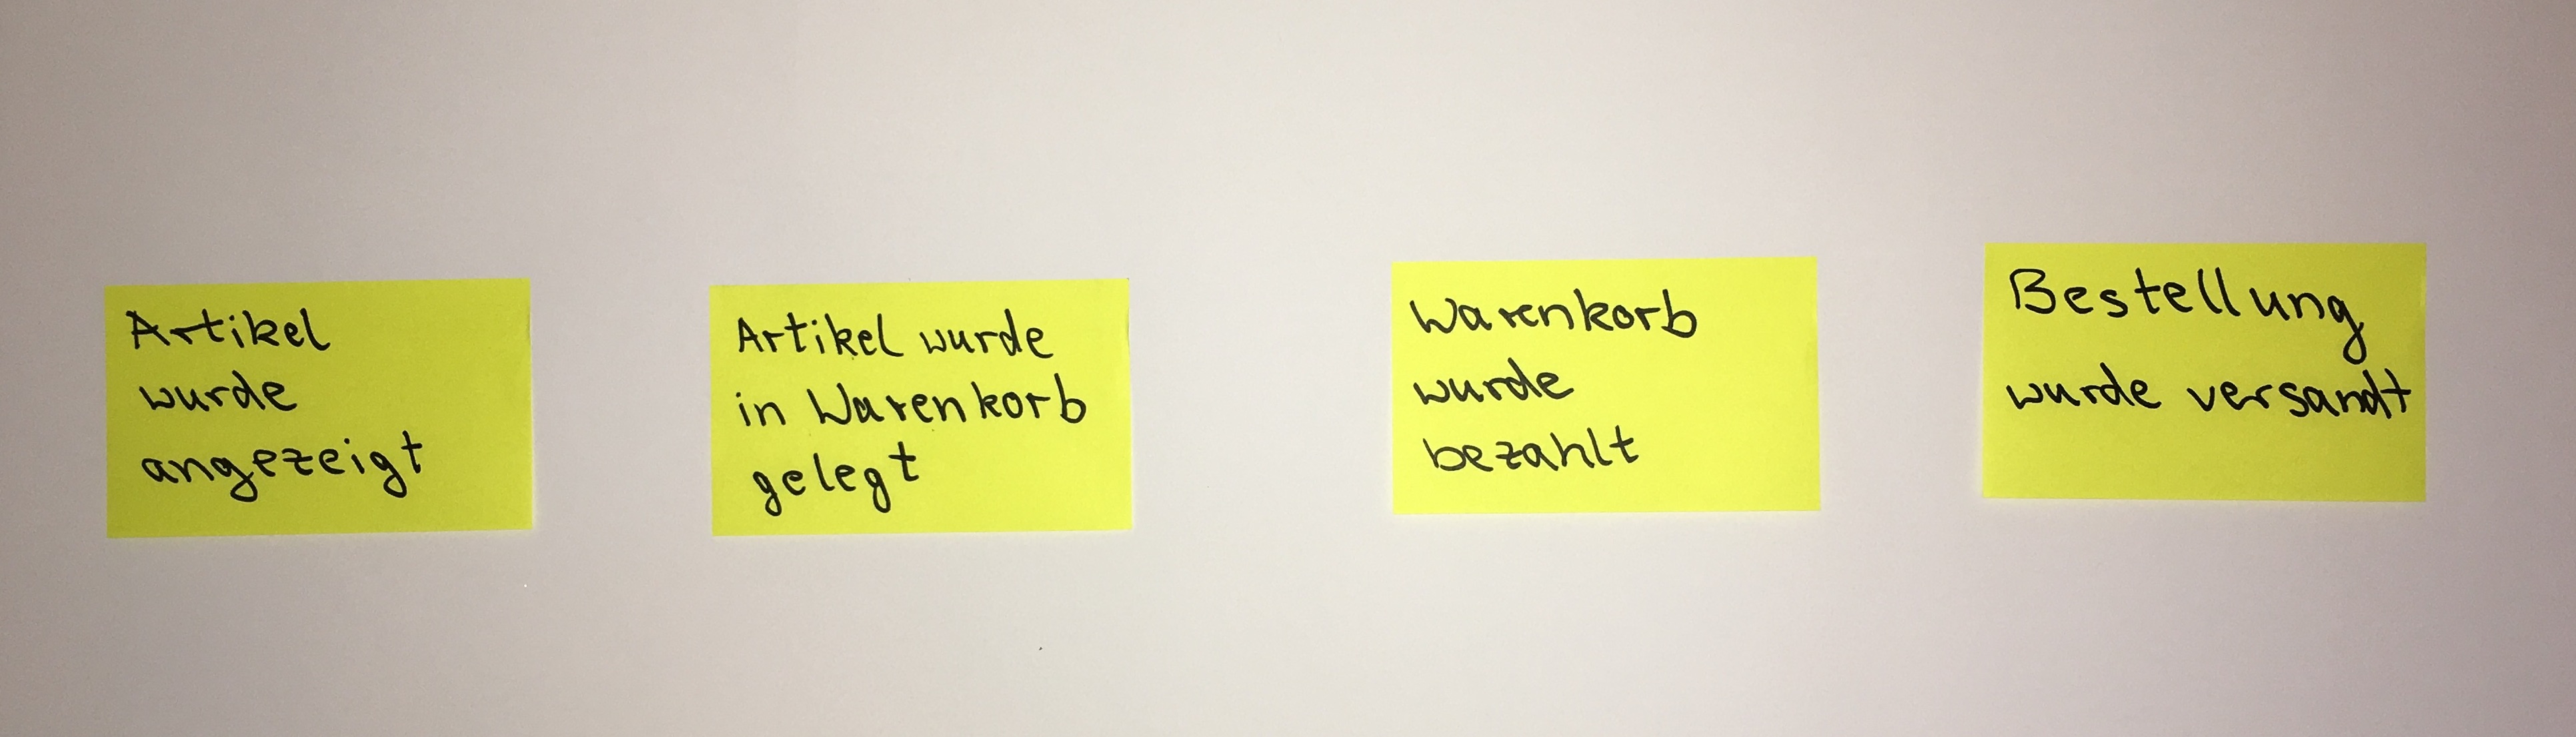 Artikel
wurde
angezeigt
Artikel wurde
in Warenkorb
gelegt
Warenkorb
wurde
bezahlt
Bestellung
wurde versandt